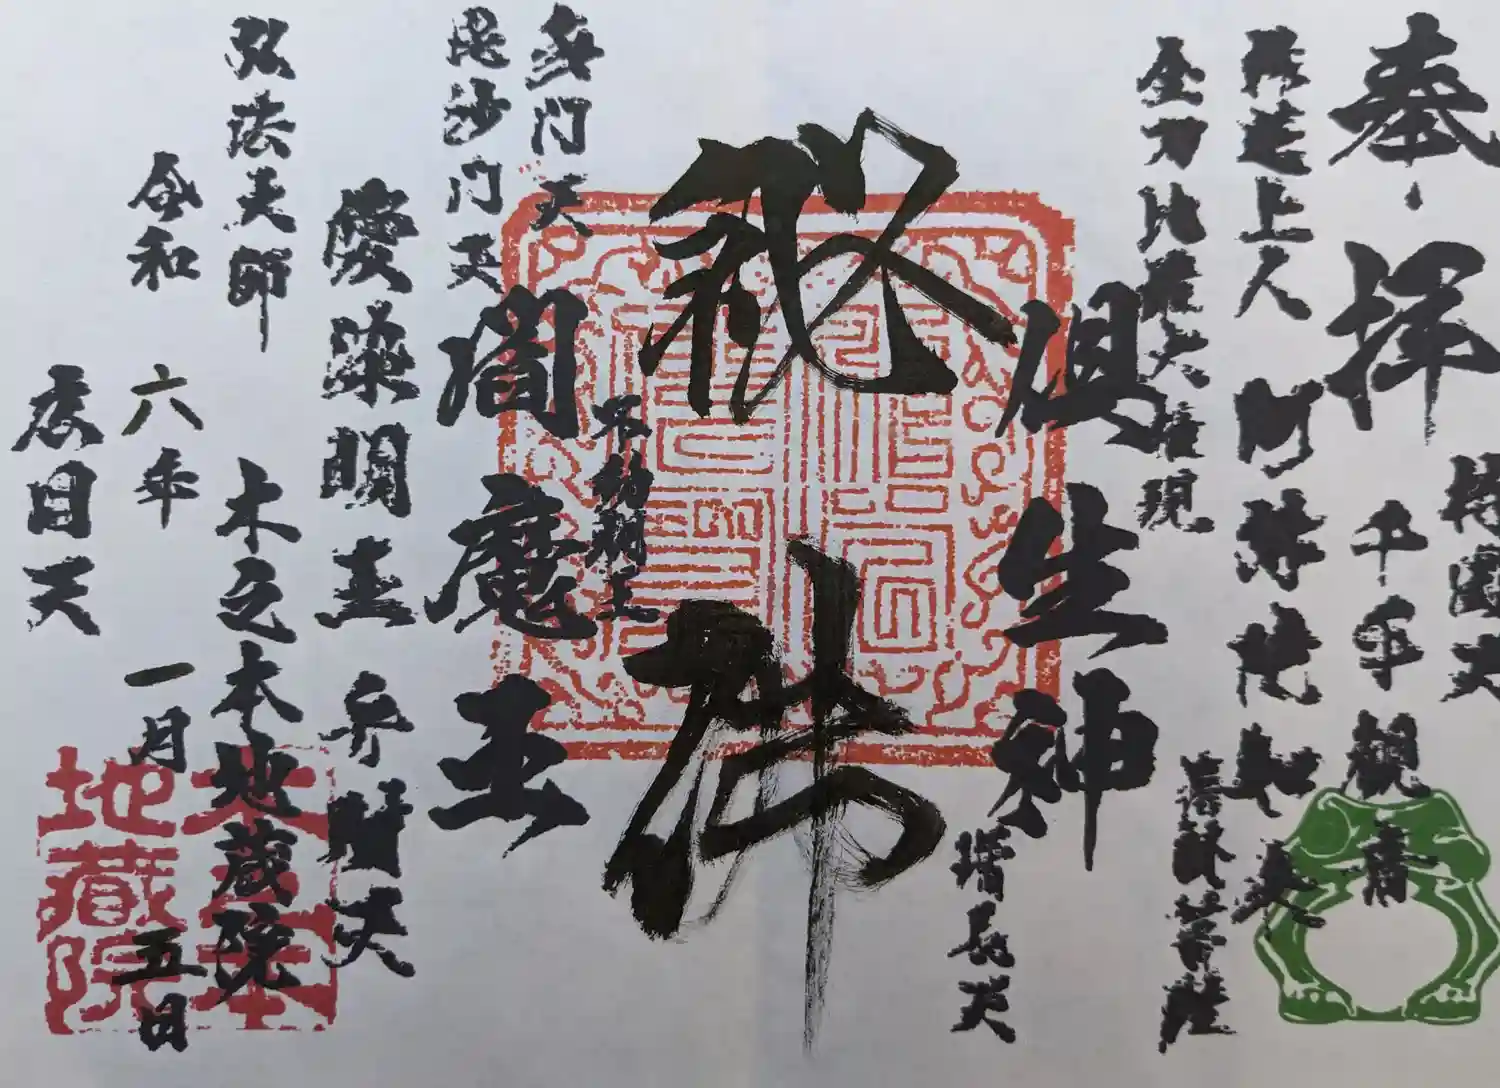 奉拝
持国天
千手観音
上人
阿弥陀如来
金刀比羅大権現
菩薩
倶生神
増長天
秘仏
多門天
毘沙門天
閻魔王
愛染明王
弁財天
弘法大師
木之本地蔵院
令和六年一月五日
木之本地蔵院